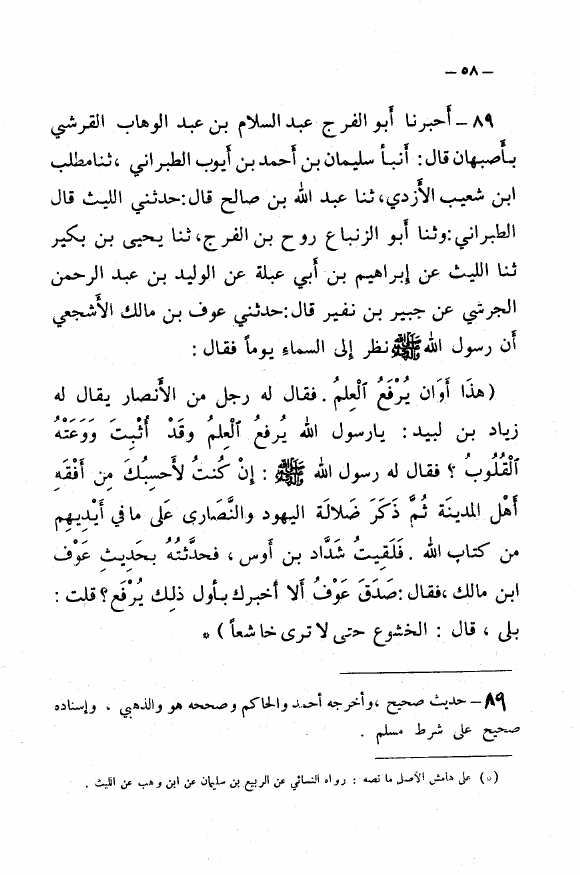 — ٥٨ —
٨٩ – أَحبرنا أَبو الفرج عبد السلام بن عبد الوهاب القرشي
بأَصبهان قال: أَنبأ سليمان بن أَحمد بن أَيوب الطبراني ،ثنا مطلب
ابن شعيب الأَزدي، ثنا عبد الله بن صالح قال:حدثني الليث قال
الطبراني:وثنا أَبو الزنباع روح بن الفرج، ثنا يحيى بن بكير
ثنا الليث عن إبراهيم بن أَبي عبلة عن الوليد بن عبد الرحمن
الجرشي عن جبير بن نفير قال:حدثني عوف بن مالك الأَشجعي
أَن رسول الله ﷺ نظر إلى السماءِ يوماً فقال :
(هذَا أَوَان يُرْفَعُ الْعِلمُ . فقال له رجل من الأَنصار يقال له
زياد بن لبيد: يارسول الله يُرفعُ الْعِلمُ وقَدْ أُثْبِتَ وَوَعَتْهُ
الْقُلُوبُ ؟ فقال له رسول الله ﷺ : إنْ كُنتُ لأَحسِبُكَ مِن أَفْقَهِ
أَهْلِ المدينَة ثُمَّ ذَكَرَ ضَلالَة اليهود والنَّصَارى عَلى ما في أَيْدِيهِم
من كتاب الله . فَلَقِيتُ شَدَّاد بن أوس ، فحدَّثتُهُ بحَدِيثِ عَوْف
ابن مالك ،فقال :صَدَقَ عَوْفُ أَلا أخبرك بأَول ذلِكَ يُرْفَع؟ قلت :
بلى ، قال : الخشوع حتى لا ترى خاشعاً ) *
٨٩ – حديث صحيح ،وأخرجه أحمد والحاكم وصححه هو والذهبي ، وإسناده
صحيح على شرط مسلم .
(*) على هامش الأصل ما نصه : رواه النسائي عن الربيع بن سليمان عن ابن وهب عن الليث .